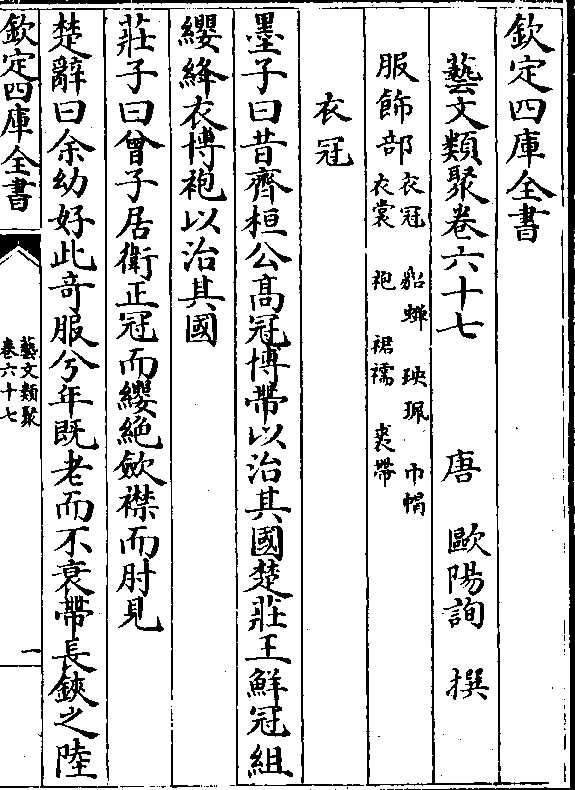 欽定四庫全書
藝文類聚卷六十七
唐 歐陽詢 撰
服飾部 衣冠 貂蟬 玦珮 巾帽
衣裳 袍 裙襦 裘帶
衣冠
墨子曰昔齊桓公髙冠博帶以治其國楚莊王鮮冠組
纓絳衣博袍以治其國
莊子曰曾子居衛正冠而纓絶斂襟而肘見
楚辭曰余幼好此竒服兮年既老而不衰帶長鋏之陸
欽定四庫全書
藝文類聚
卷六十七
一